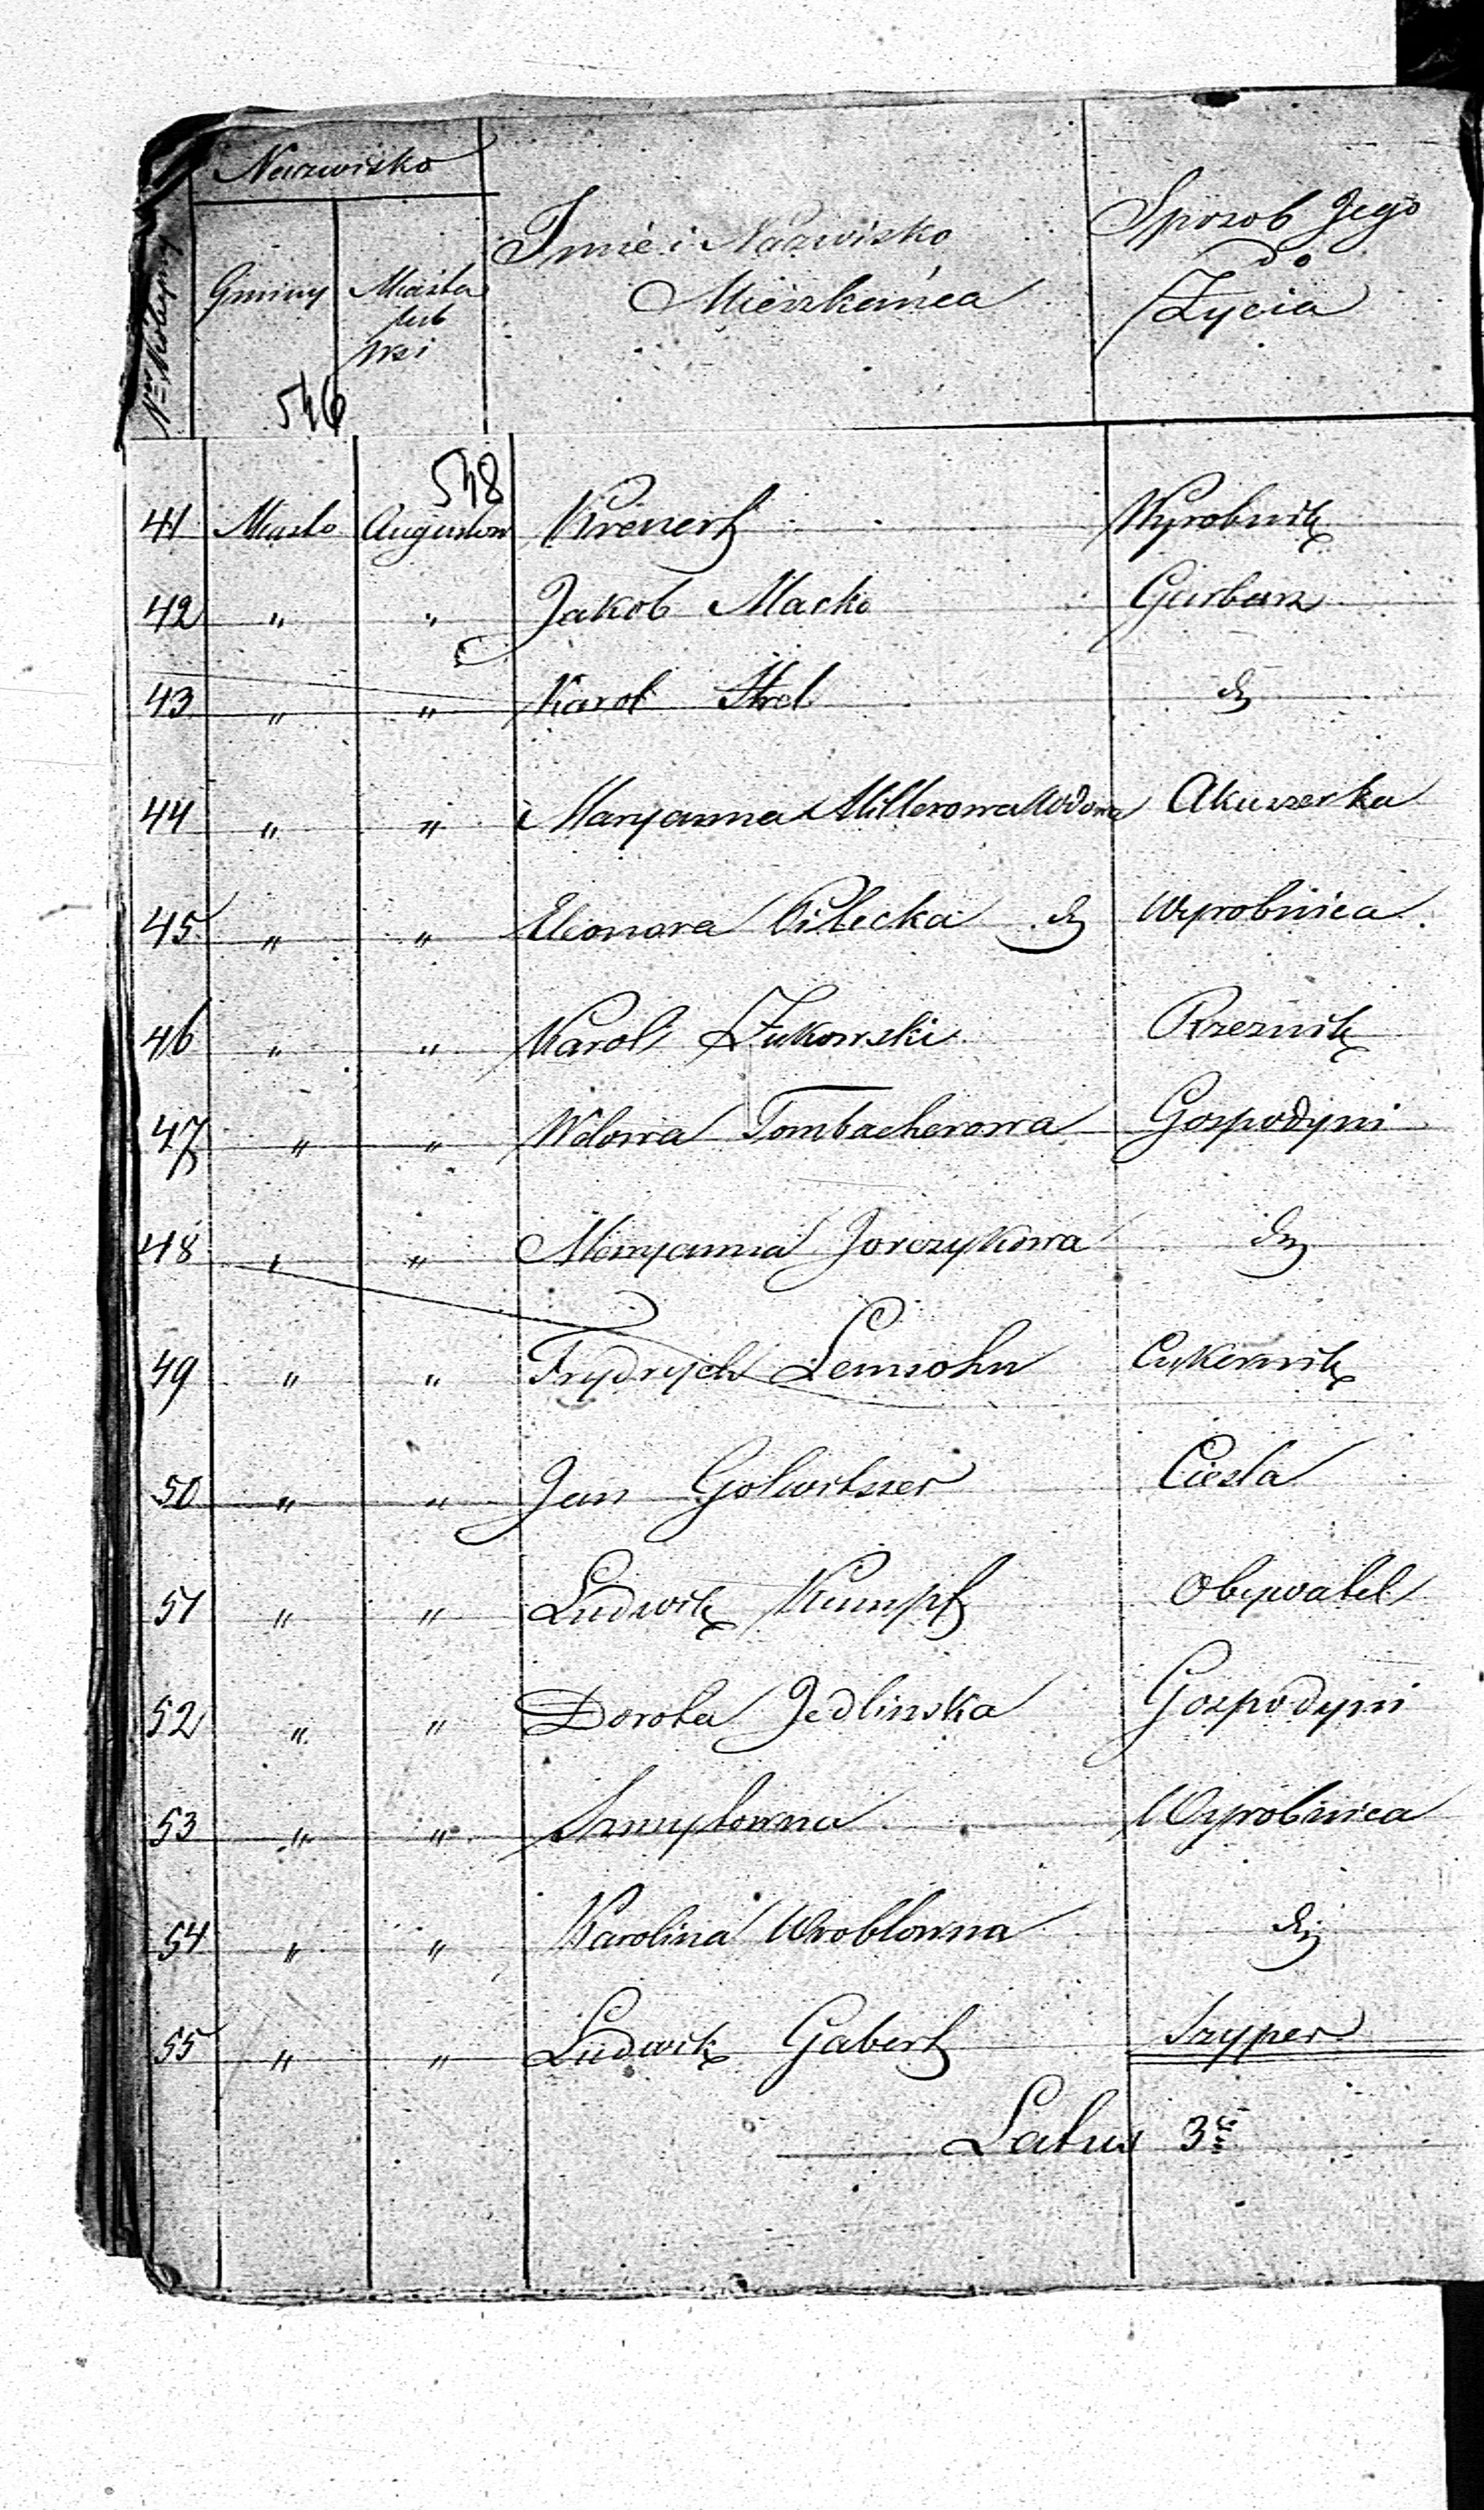 Nazwisko
Nro Kolejny
Gminy
Miasta
lub
Wsi
Imie i Nazwisko
Mieszkańca
Sposob Jego
do
Życia
546
548
41 Miasto Augustow Krenert Wyrobnik
42 " " Jakob Macko Garbarz
43 " " Karol Strel dto
44 " " Maryanna Millerowa Wdowa Akuszerka
45 " " Eleonora Pilecka dto Wyrobnica
46 " " Karol Żukowski Rzeznik
47 " " Wdowa Tombacherowa Gospodyni
48 " " Maryanna Jorczykowa dto
49 " " Frydrych Lemsohn Cukiernik
50 " " Jan Golwitzer Ciesla
51 " " Ludwik Kumpf Obywatel
52 " " Dorota Jedlinska Gospodyni
53 " " Szmytowna Wyrobnica
54 " " Karolina Wroblowna dto
55 " " Ludwik Gabert Szyper
Latus 3